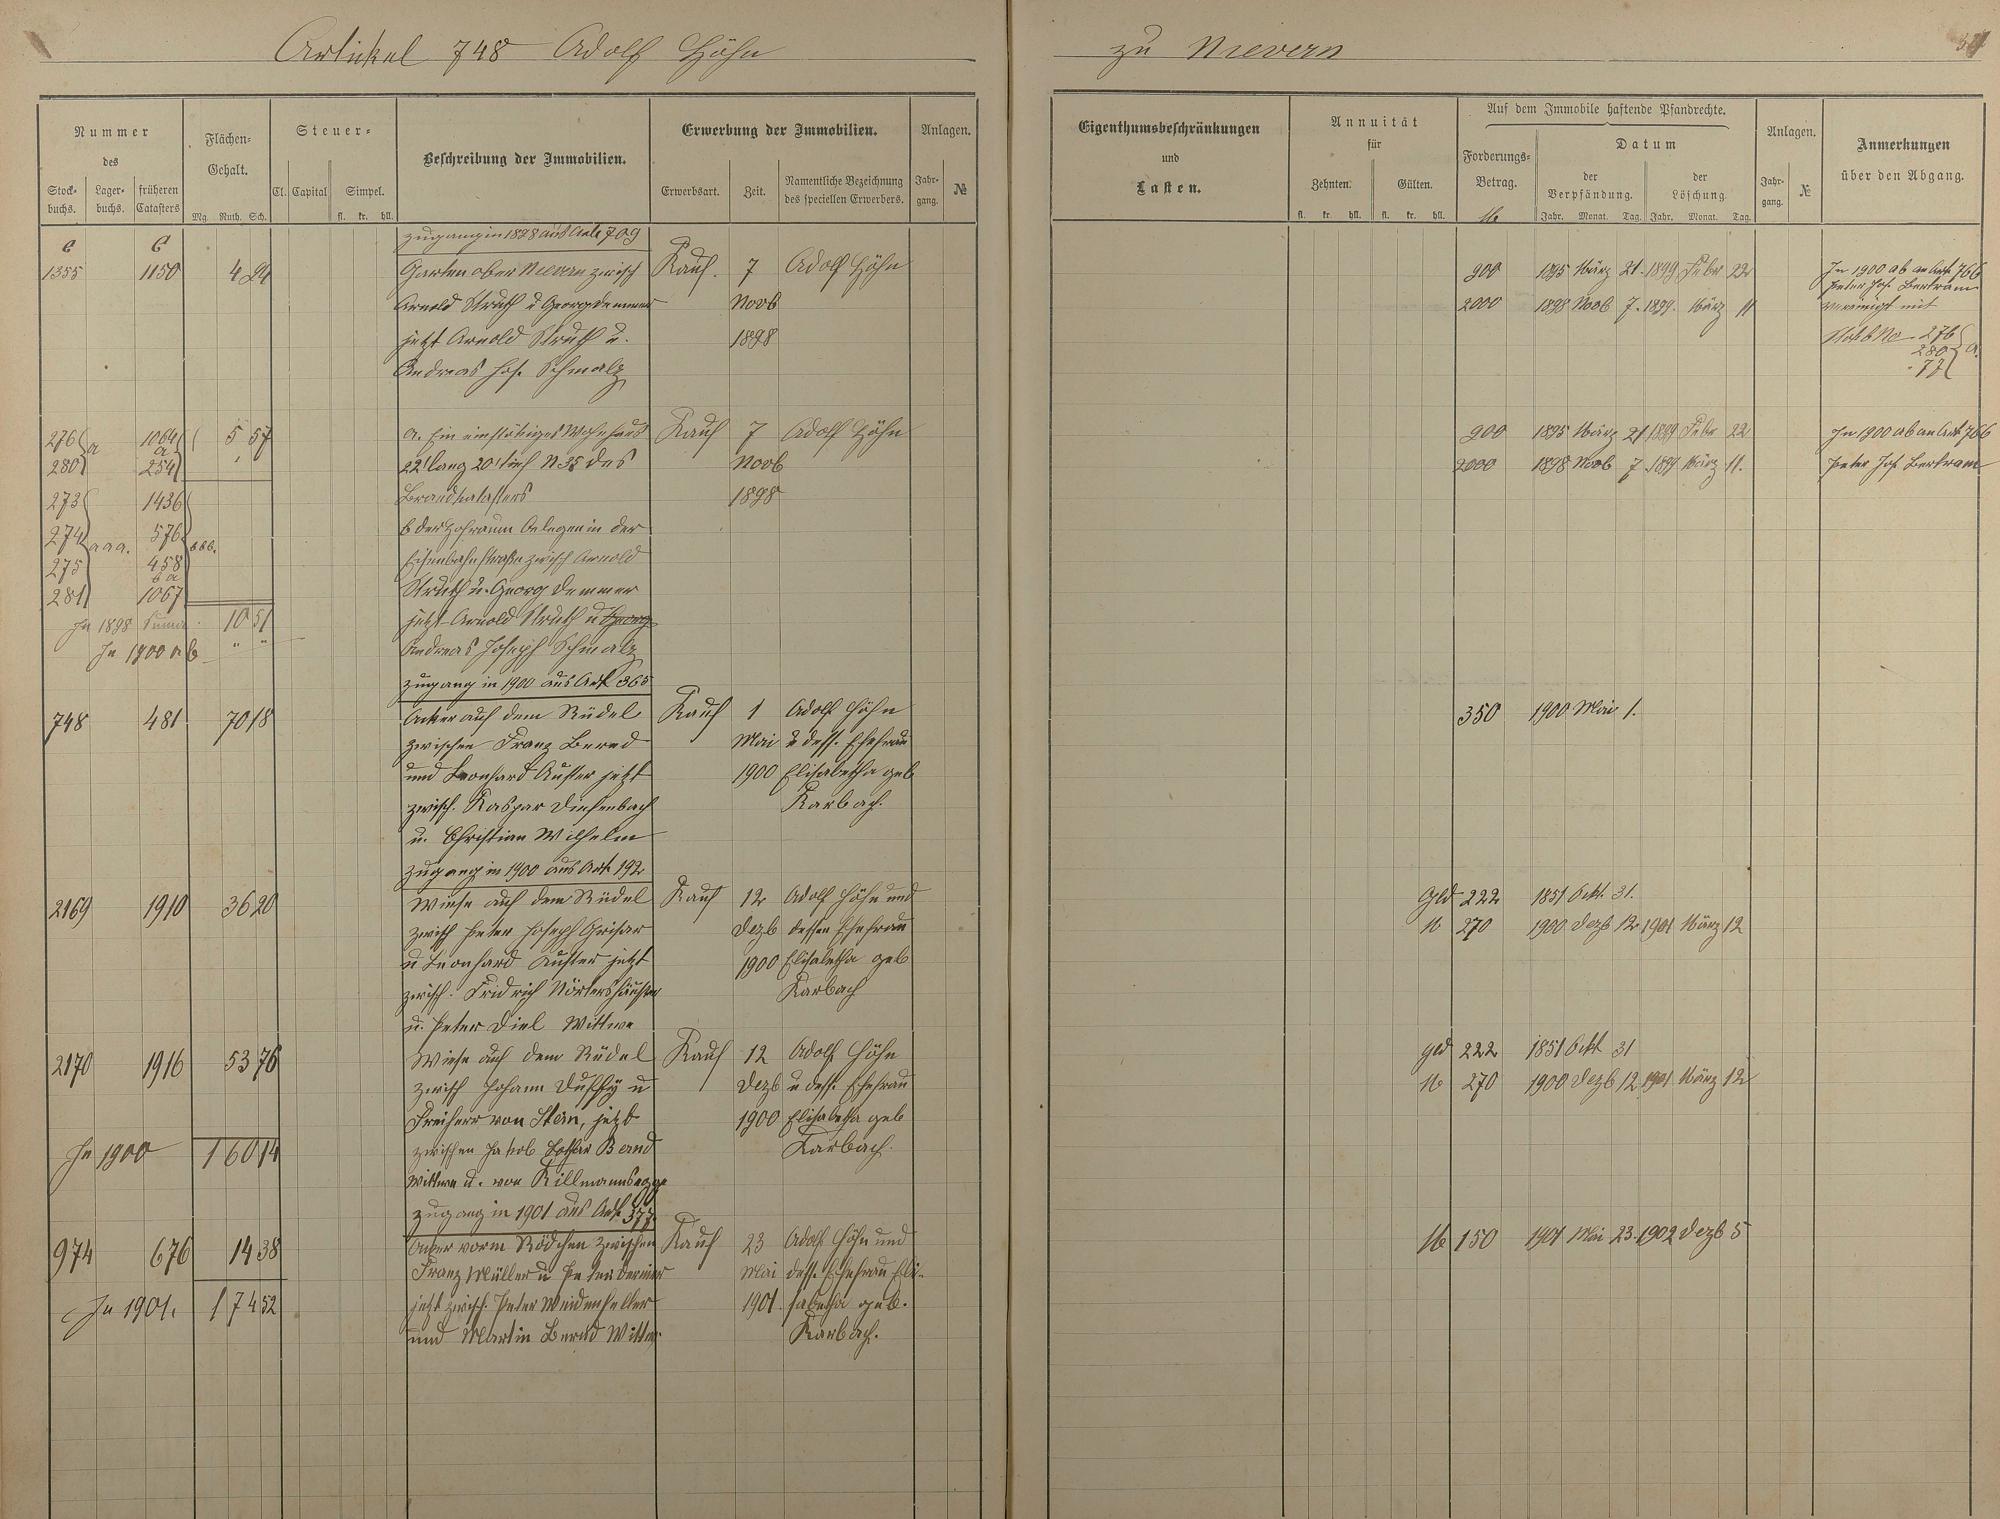 Artikel 748 Adolf Höhn
zu Nievern
Nummer
des
Stock-
buchs.
Lager-
buchs.
früheren
Catasters
Flächen-
Gehalt.
Mg. Ruth. Sch.
Steuer-
Cl. Capital Simpel.
fl. kr. hll.
Beschreibung der Immobilien.
Erwerbung der Immobilien.
Erwerbsart. Zeit.
Namentliche Bezeichnung
des speciellen Erwerbers.
Anlagen.
Jahr-
gang.
№
Eigenthumsbeschränkungen
und
Lasten.
Annuität
für
Zehnten. Gülten.
fl. kr. hll. fl. kr. hll.
Auf dem Immobile haftende Pfandrechte.
Forderungs-
Betrag.
Datum
der
Verpfändung.
der
Löschung
Jahr. Monat. Tag. Jahr. Monat. Tag.
Anlagen.
Jahr-
gang.
№
Anmerkungen
über den Abgang.
Zugang in 1898 aus Art. 709
1355 1150 4 94 Garten ober Nievern zwisch Kauf. 7 Adolf Höhn
Arnold Struth u Georg Demmer Novb
jetzt Arnold Struth u. 1898
Andreas Jos. Schmalz
900 1895 März 21. 1899 Febr 22
2000 1898 Novb 7. 1899. März 11
In 1900 ab an Art 766
Peter Jos. Bertram
vereinigt mit
276
280 a.
77
276 a 1064 5 57 a. Ein einstökiges Wohnhaus Kauf 7 Adolf Höhn
280 254 22' lang 20' tief N 35 des Novb
273 1436 Brandkatasters 1898
274 aaa. 576 bbb. b der Hofraum Gelegen in der
275 458 Eisenbahnstraße zwisch Arnold
281 1067 Struth u. Georg Demmer
In 1898 Summa 10 51 jetzt Arnold Struth u Georg
In 1900 ab " " Andreas Joseph Schmalz
900 1895 März 21 1899 Febr 22
2000 1898 Novb 7. 1899 März 11.
In 1900 ab an Art 766
Peter Jos. Bertram
Zugang in 1900 aus Art 365
748 481 70 18 Acker auf dem Rüdel Kauf 1 Adolf Höhn
zwischen Franz Bernd Mai u dess. Ehefrau
und Leonhard Auster jetzt 1900 Elisabetha geb
zwisch. Kaspar Diefenbach Karbach.
u. Christian Wilhelm
350 1900 Mai 1.
Zugang in 1900 aus Art. 192
2169 1910 36 20 Wiese auf dem Rüdel Kauf 12 Adolf Höhn und
zwisch Peter Joseph Grisar Dezb dessen Ehefrau
u Leonhard Auster jetzt 1900 Elisabetha geb
zwisch. Fridrich Nörtershäuser Karbach
u. Peter Diel Wittwe
Gld 222 1851 Okt. 31.
M 270 1900 Dezb 12 1901 März 12
2170 1916 53 76 Wiese auf dem Rüdel Kauf 12 Adolf Höhn
zwisch Johann Duffhy u Dezb u dess. Ehefrau
Freiherr von Stein, jetzt 1900 Elisabetha geb
In 1900 1 60 14 zwischen Jakob Lothar Bernd Karbach.
Wittwe u. von Killmannsegge
Gld 222 1851 Okt 31
M 270 1900 Dezb 12 1901 März 12
Zugang in 1901 aus Art. 377.
974 676 14 38 Acker vorm Rödchen zwischen Kauf 23 Adolf Höhn und
Franz Müller u Peter Mai dess. Ehefrau Eli-
In 1901. 1 74 52 jetzt zwisch. Peter Weidenfeller 1901. sabetha geb.
und Martin Bernd Wittw. Karbach.
M 150 1901 Mai 23. 1902 Dezb 5